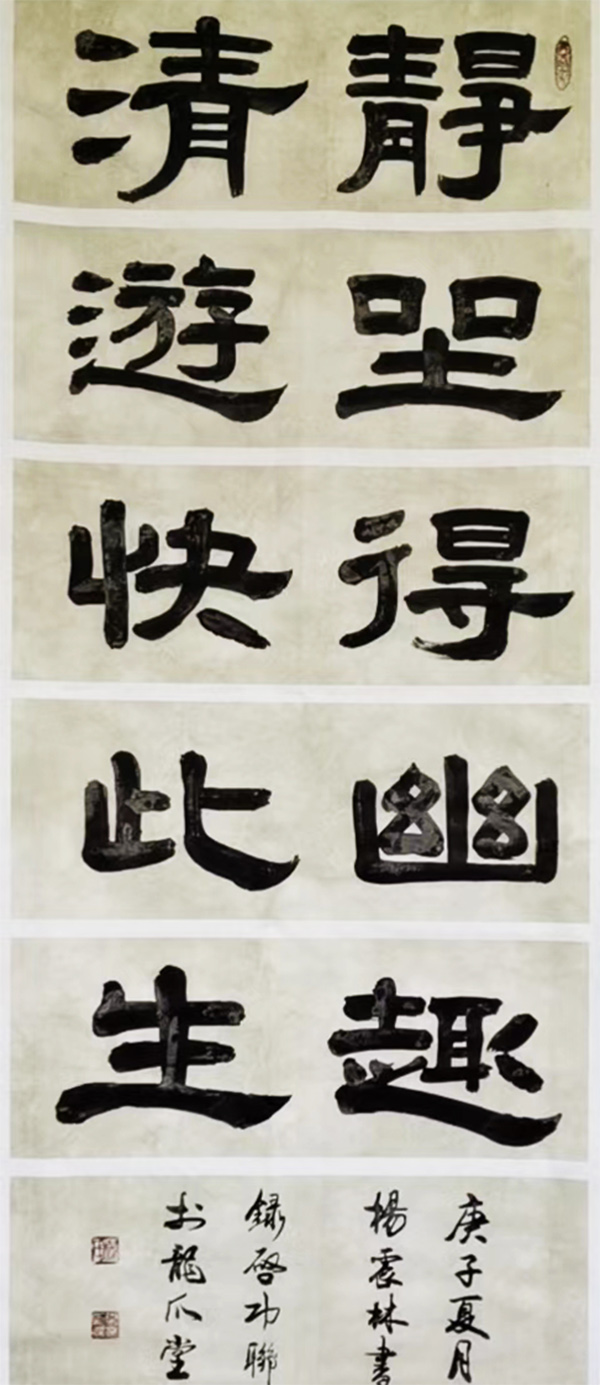 靜坐得幽趣
清遊快此生
庚子夏月
楊震林書
録啓功聯
於龍爪堂